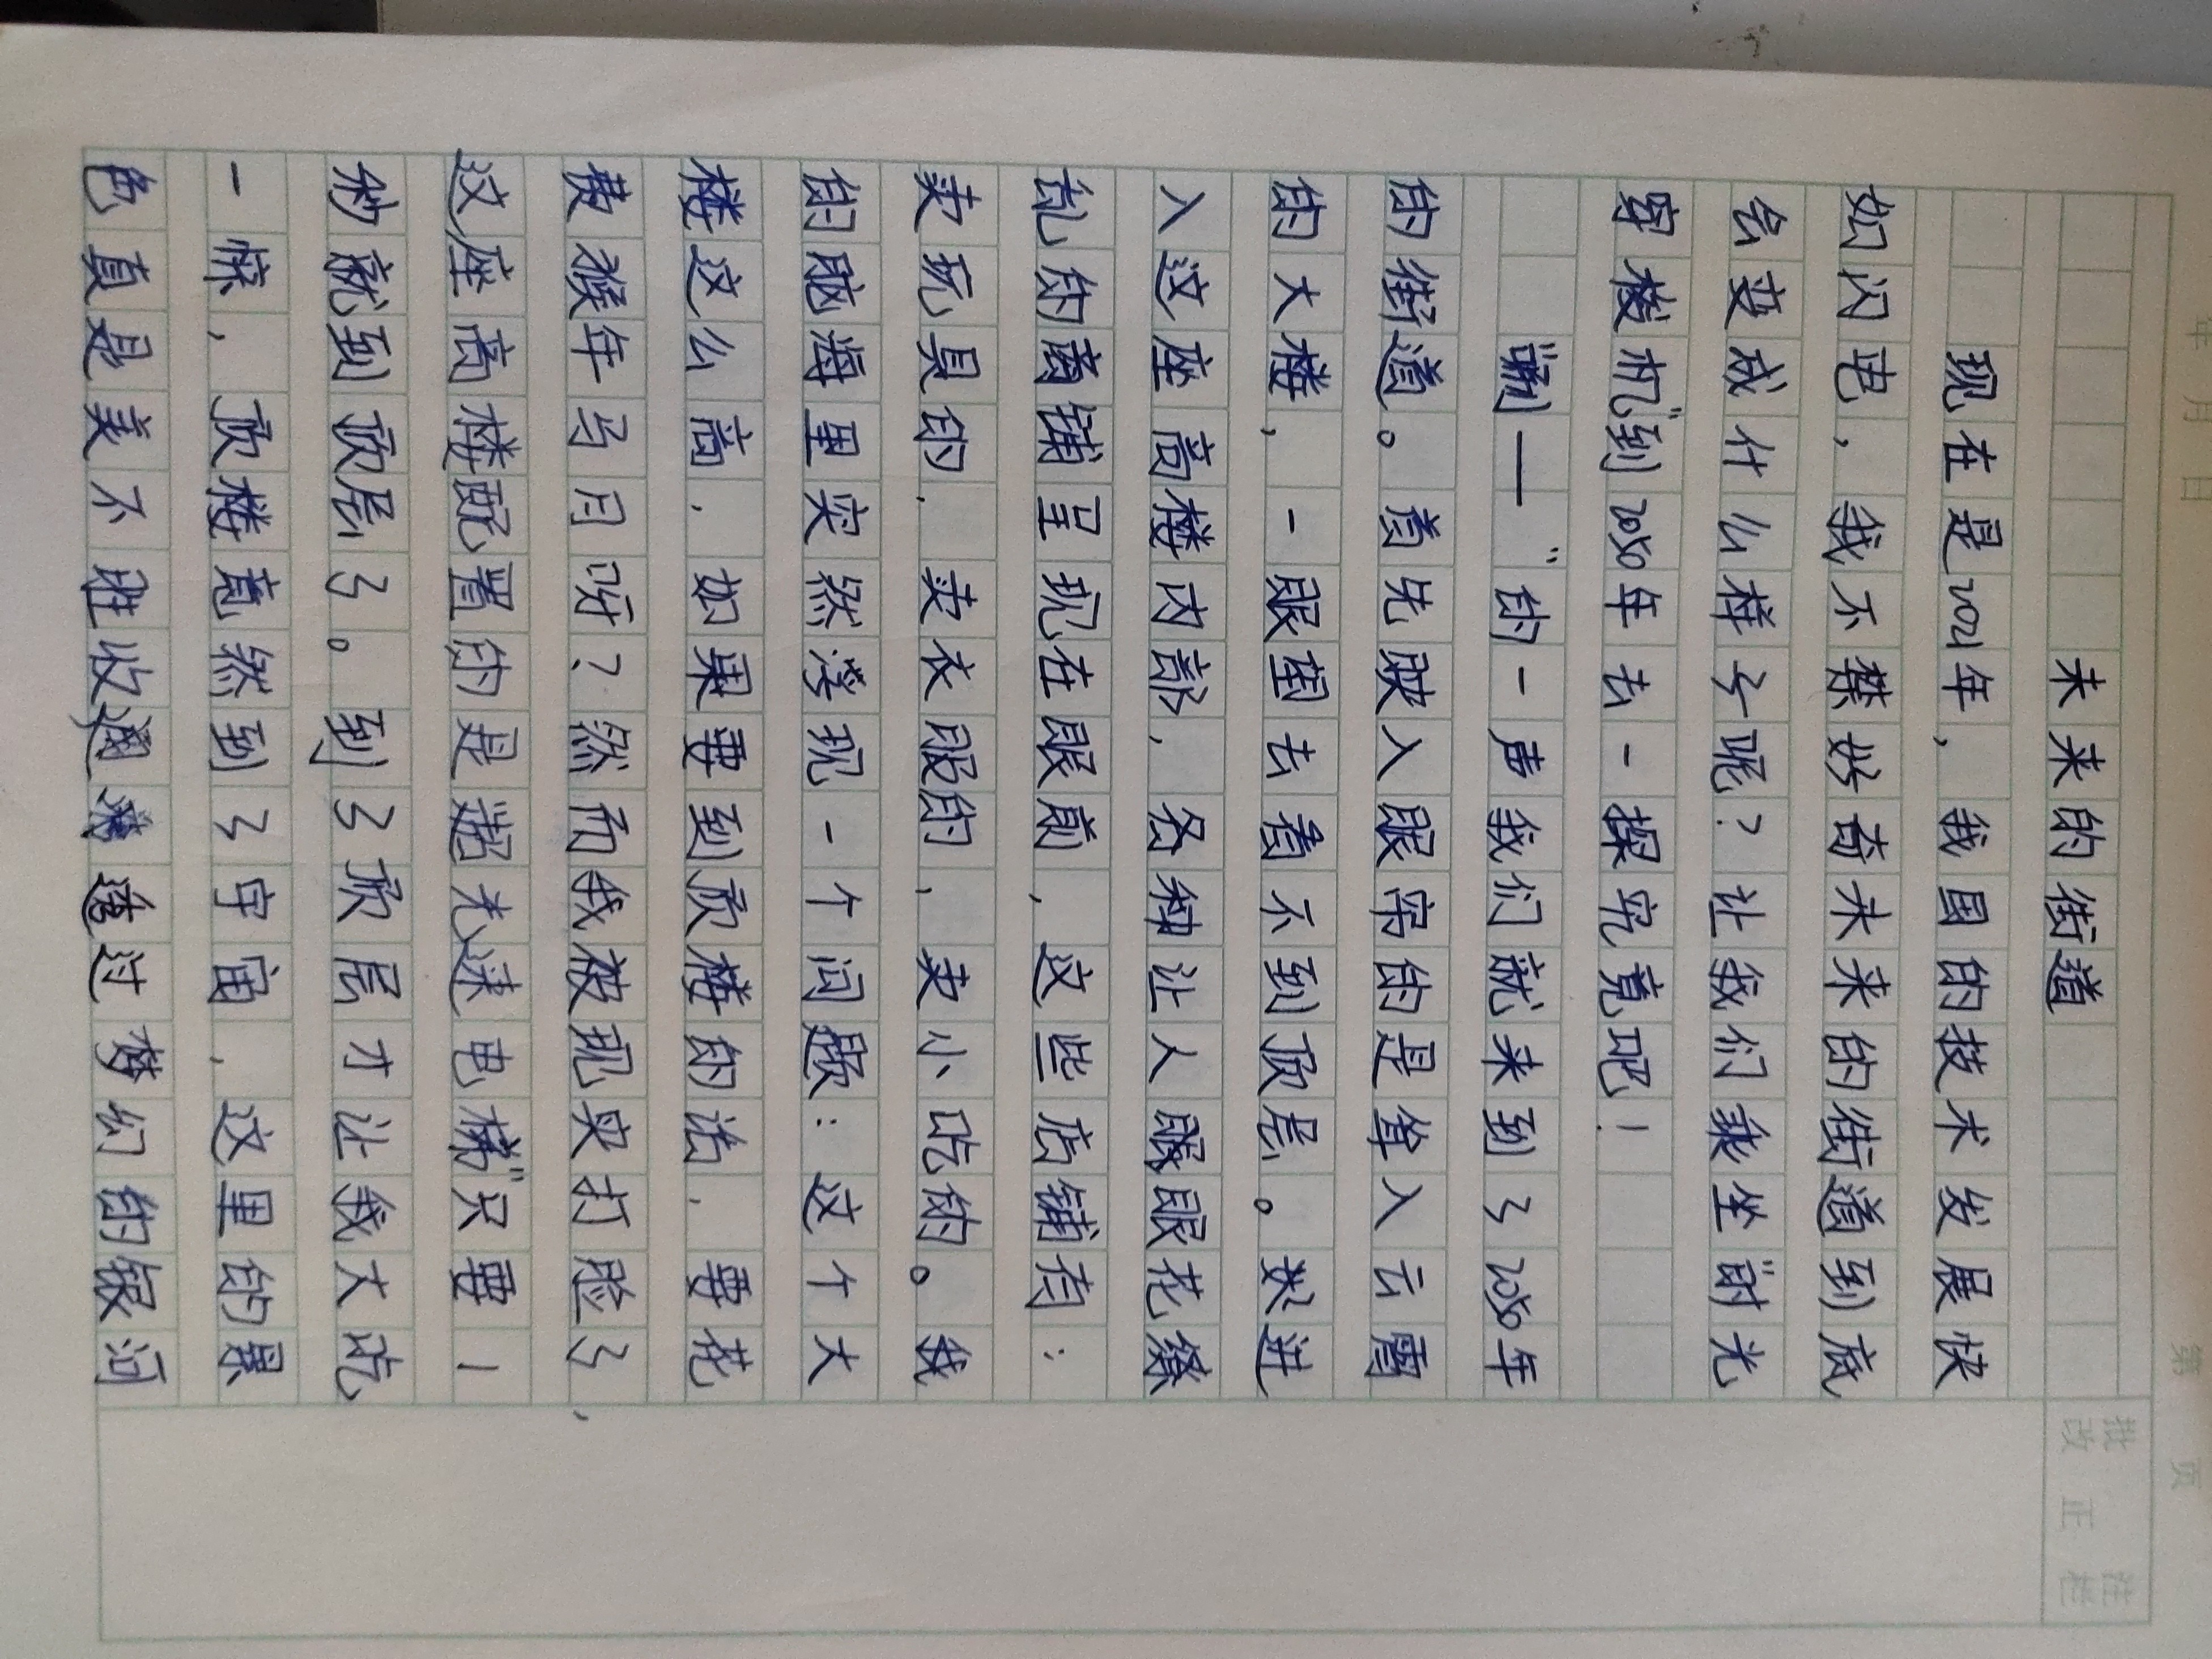 年 月 日
第 页
未来的街道
批改正栏
现在是2021年，我国的技术发展快
如闪电，我不禁好奇未来的街道到底
会变成什么样子呢？让我们乘坐“时光
穿梭机”到2050年去一探究竟吧！
“唰——”的一声我们就来到了2050年
的街道。首先映入眼帘的是耸入云霄
的大楼，一眼望去看不到顶层。走进
入这座高楼内部，各种让人眼眼花缭
乱的商铺呈现在眼前，这些店铺有：
卖玩具的，卖衣服的，卖小吃的。我
的脑海里突然浮现一个问题：这个大
楼这么高，如果要到顶楼的话，要花
费猴年马月呀？然而我被现实打脸了，
这座高楼配置的是“超光速电梯”只要1
秒就到顶层了。到了顶层才让我大吃
一惊，顶楼竟然到了宇宙，这里的景
色真是美不胜收透过梦幻的银河